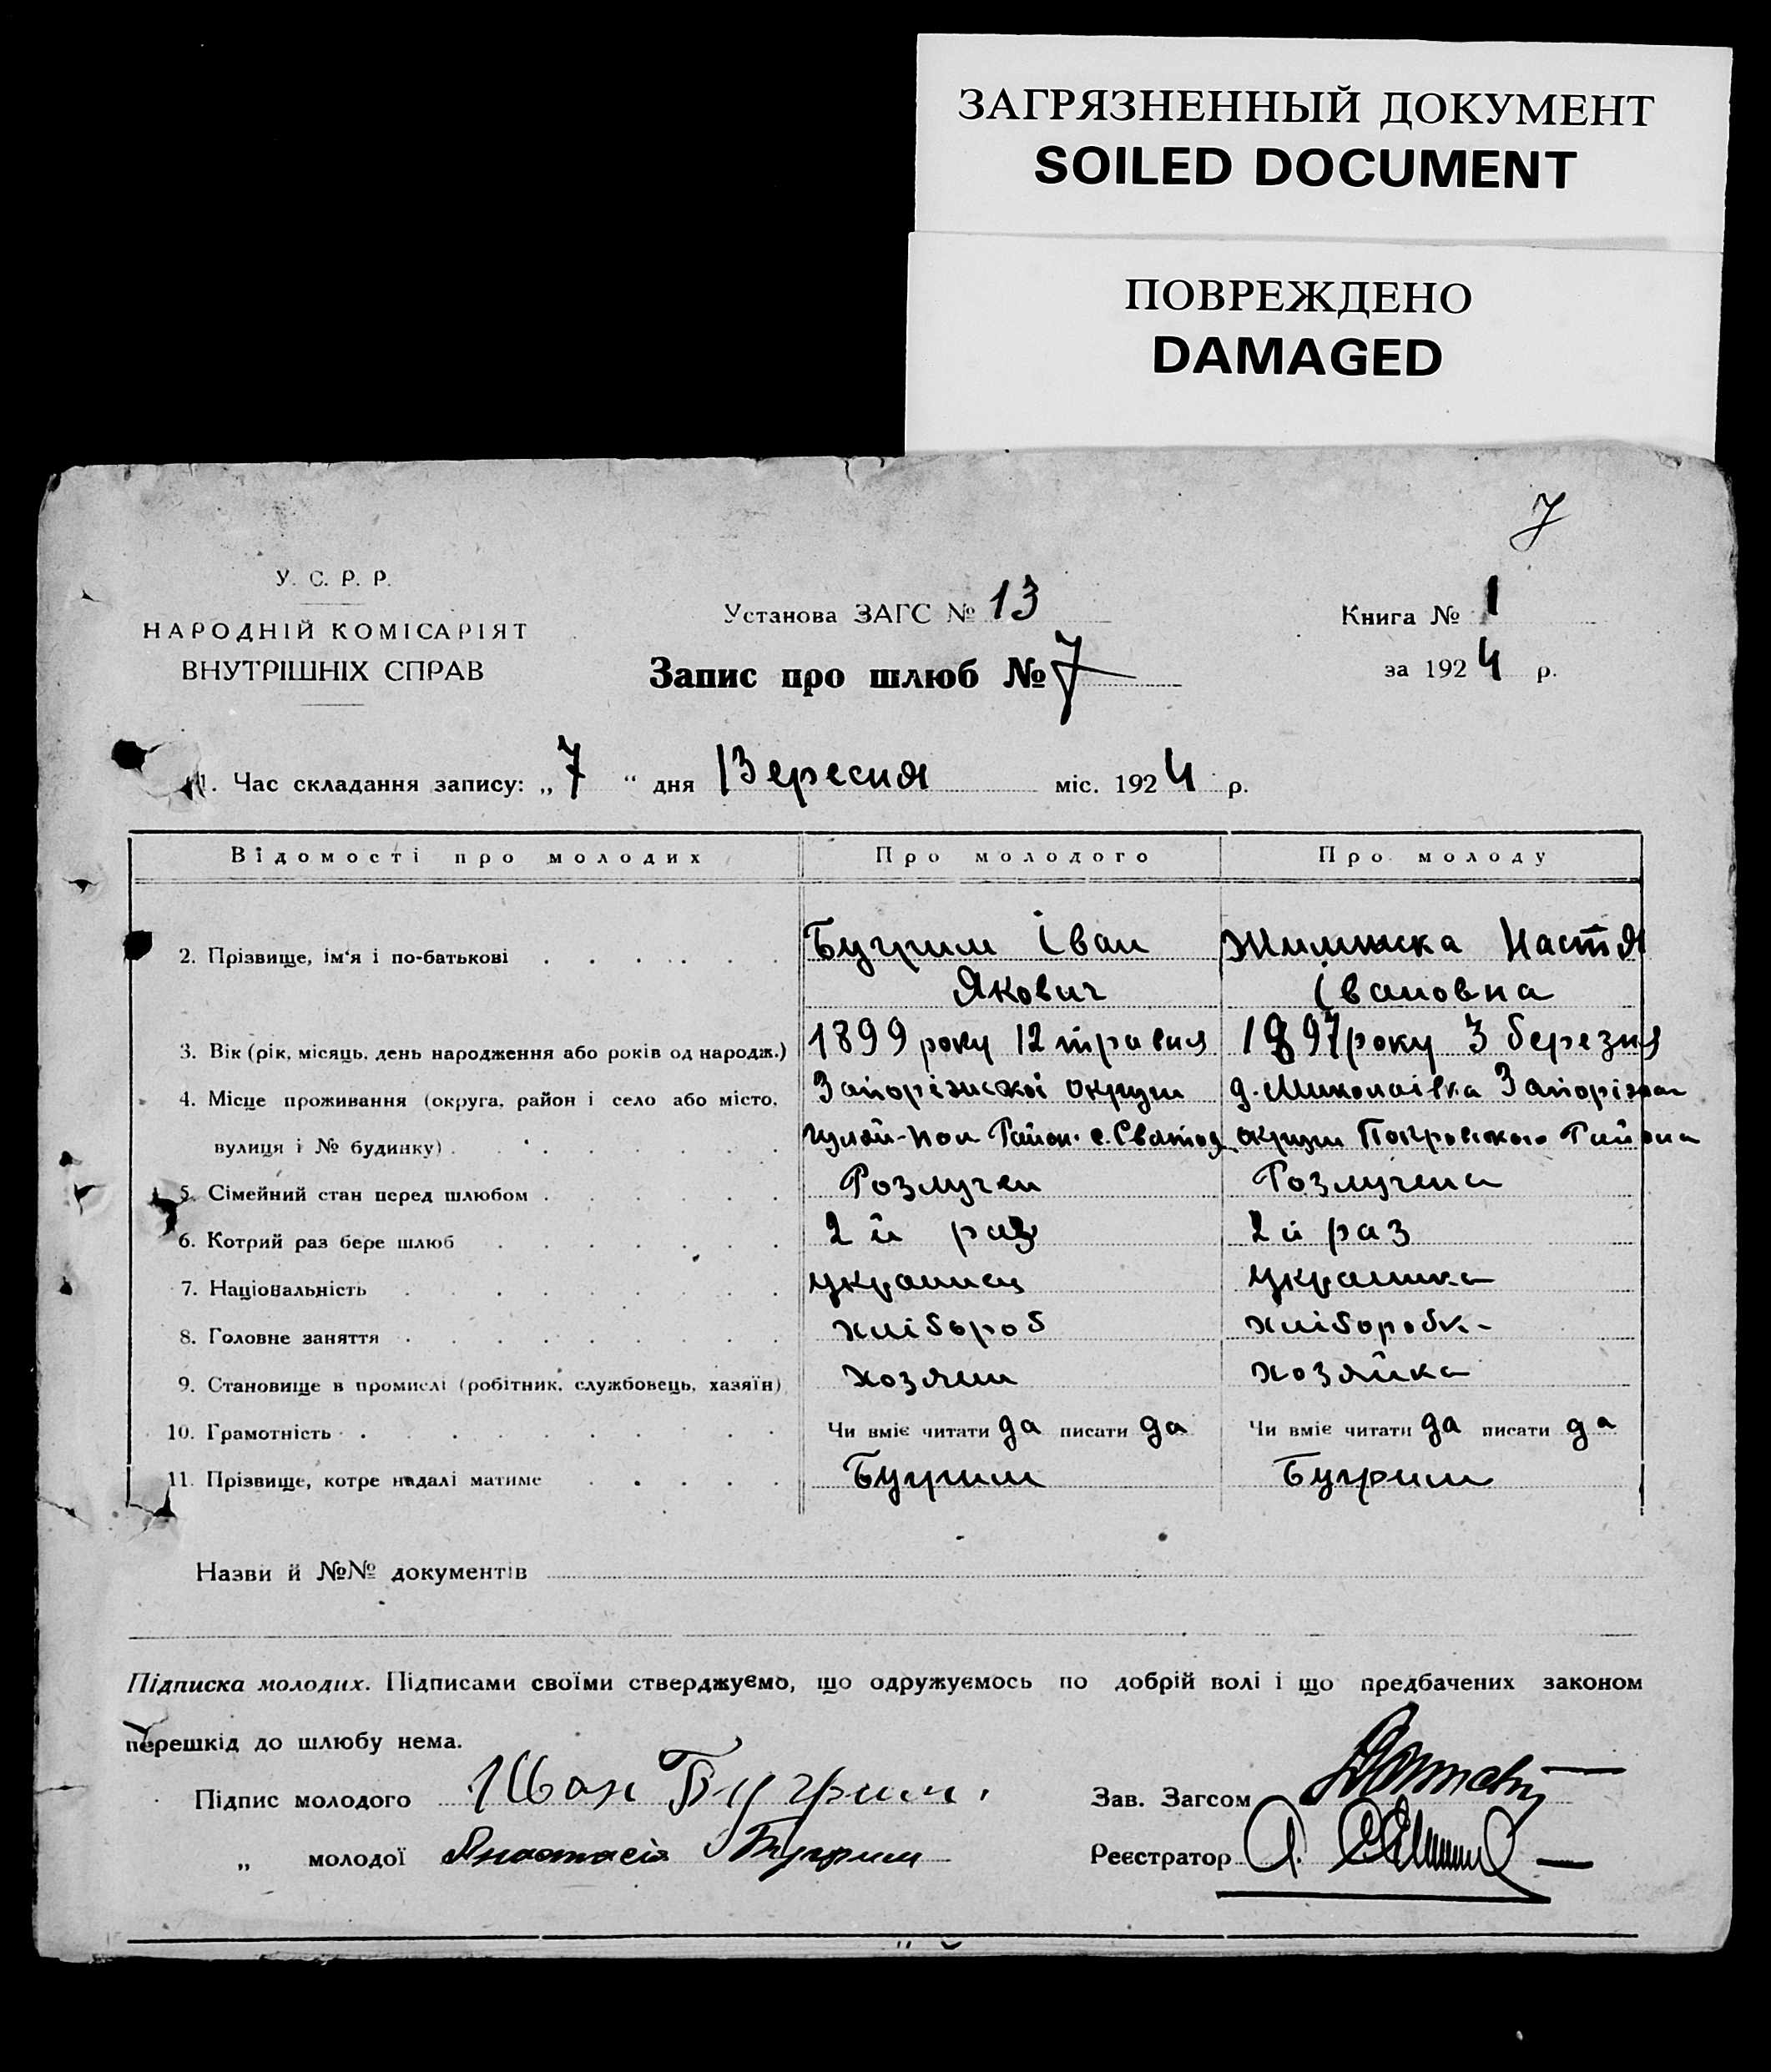 ЗАГРЯЗНЕННЫЙ ДОКУМЕНТ
SOILED DOCUMENT
ПОВРЕЖДЕНО
DAMAGED
7
У. С. Р. Р.
НАРОДНІЙ КОМІСАРІЯТ
ВНУТРІШНІХ СПРАВ
Установа ЗАГС № 13
Запис про шлюб № 7
Книга № 1
за 1924 р.
1. Час складання запису: „7“ дня Вересня міс. 1924 р.
Відомості про молодих Про молодого Про молоду
2. Прізвище, ім'я і по-батькові Бугрим Іван Настя
Якович Івановна
3. Вік (рік, місяць, день народження або років од народж.) 1899 року 12 травня 1897 року 3 березня
4. Місце проживання (округа, район і село або місто, Запоріжскої округи д. Миколаівка Запорізкоі
вулиця і № будинку) Гуляй-Пол Район. с. Святод округи Покровского Района
5. Сімейний стан перед шлюбом Розлучен Розлучена
6. Котрий раз бере шлюб 2й раз 2й раз
7. Національність украинец украинка
8. Головне заняття хлібороб хліборобка
9. Становище в промислі (робітник, службовець, хазяїн) хозяин хозяйка
10. Грамотність Чи вміє читати да писати да Чи вміє читати да писати да
11. Прізвище, котре надалі матиме Бугрим Бугрим
Назви й №№ документів
Підписка молодих. Підписами своїми стверджуємо, що одружуємось по добрій волі і що предбачених законом
перешкід до шлюбу нема.
Підпис молодого Иван Бугрим.
Зав. Загсом
„ молодої Анастасія Бугрим
Реєстратор